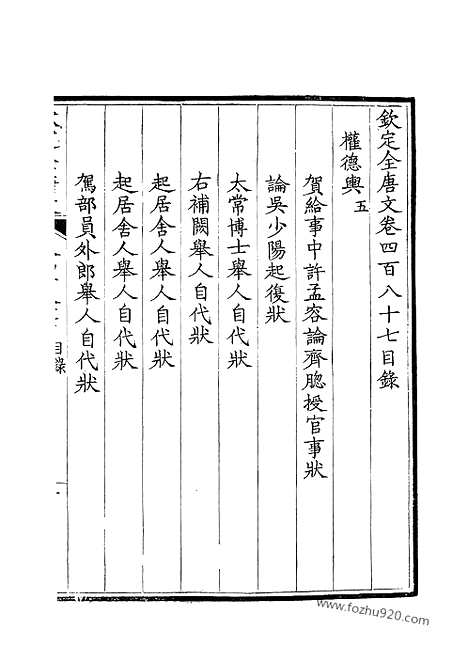 欽定全唐文卷四百八十七目錄
權德輿 五
賀給事中許孟容論齊膨授官事狀
論吳少陽起復狀
太常博士舉人自代狀
右補闕舉人自代狀
起居舍人舉人自代狀
起居舍人舉人自代狀
駕部員外郎舉人自代狀
目錄
www.fozhu920.com